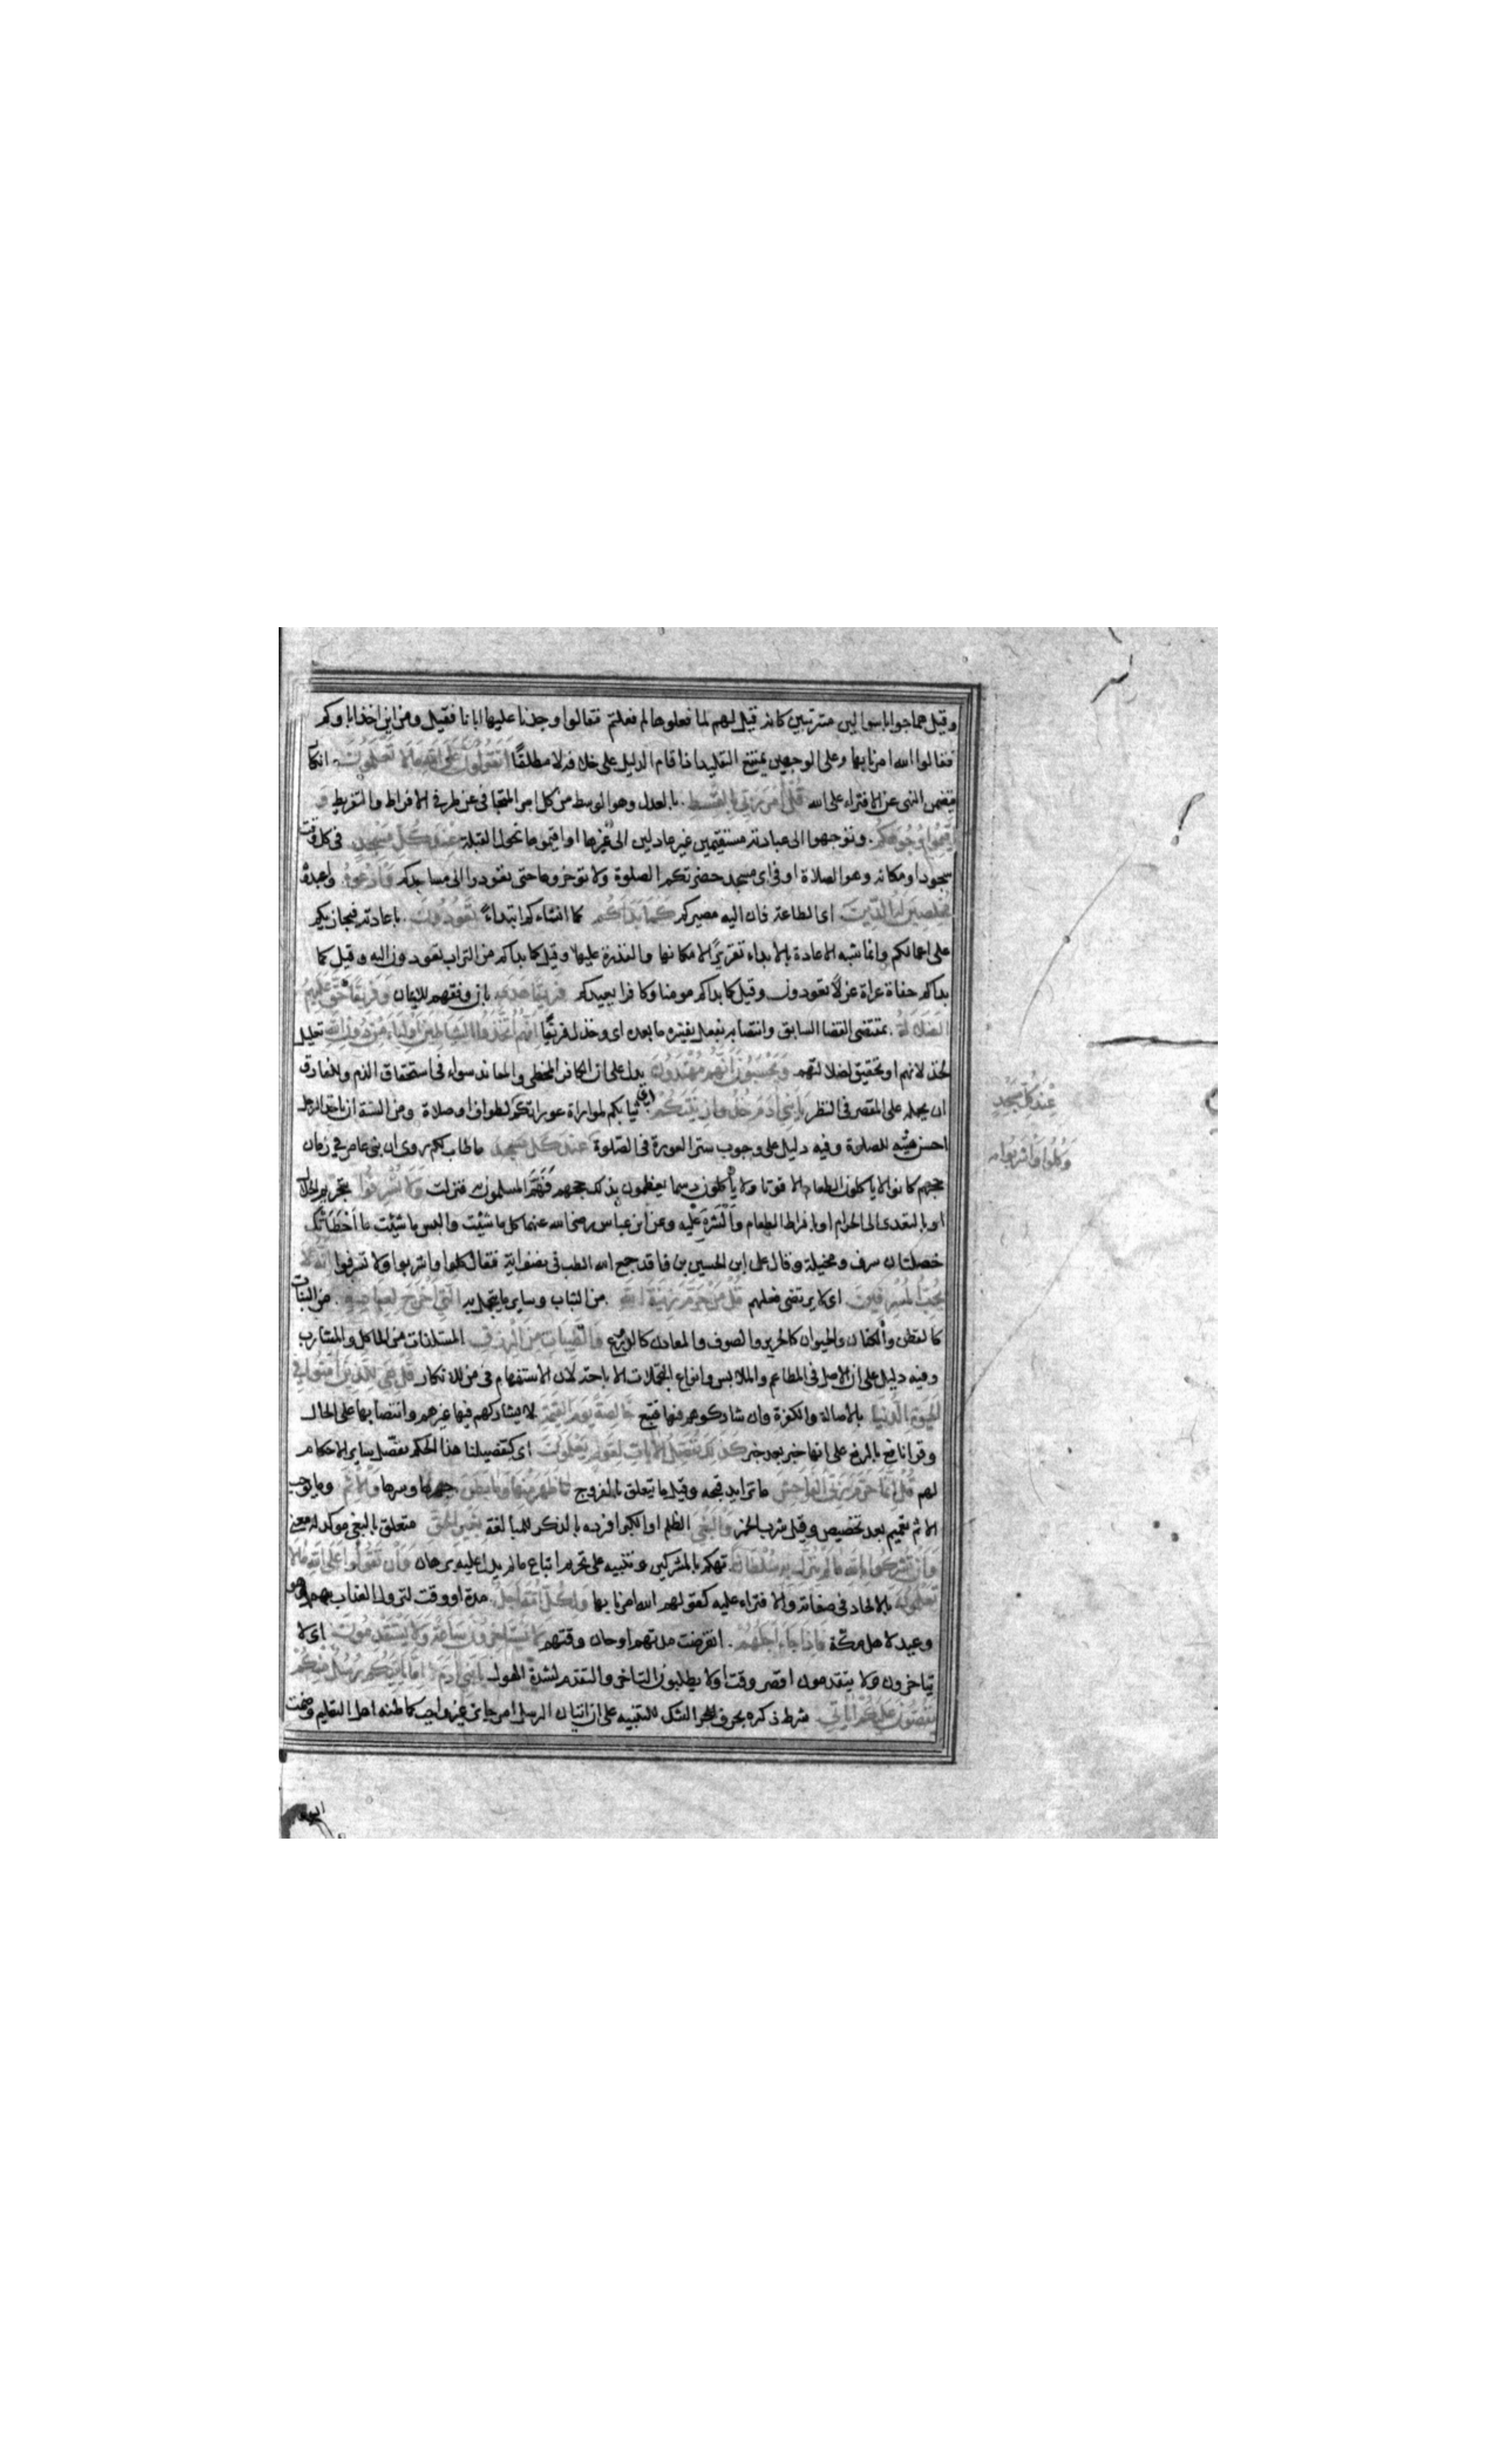 وقيل هما جوابا سوالين مترتبين كانه قيل لهم لما فعلوها لم فعلتم فقالوا وجدنا عليها اباءنا فقيل ومن اين اخذ اباوكم
فقالوا الله امرنا بها وعلى الوجهين يمتنع التقليد اذا قام الدليل على خلافه لا مطلقًا اتقولون على الله ما لا تعلمون انكار
يتضمن النهى عن الافتراء على الله قل امر ربي بالقسط بالعدل وهو الوسط من كل امر المتجافى عن طرفى الافراط والتفريط و
اقيموا وجوهكم وتوجهوا الى عبادته مستقيمين غير عادلين الى غيرها او اقيموها نحو القبلة عند كل مسجد فى كل وقت
سجود او مكانه وهو الصلاة او فى اى مسجد حضرتكم الصلوة ولا توخروها حتى تعودوا الى مساجدكم وادعوه واعبدوه
مخلصين له الدين اى الطاعة فان اليه مصيركم كما بدأكم كما انشاءكم ابتداءً تعودون باعادته فيجازيكم
على اعمالكم وانما شبه الاعادة بالابداء تقريرًا لامكانها والقدرة عليها وقيل كما بدأكم من التراب تعودون اليه وقيل كما
بدأكم حفاة عراة غرلاً تعودون وقيل كما بداكم مومنا وكافرا يعيدكم فريقا هدى بان وفقهم للايمان وفريقا حق عليهم
الضلالة بمقتضى القضا السابق وانتصابه بفعل يفسره ما بعده اى وخذل فريقًا انهم اتخذوا الشياطين اولياء من دون الله تعليل
لخذلانهم او تحقيق لضلالتهم ويحسبون انهم مهتدون يدل على ان الكافر المخطى والمعاند سواء فى استحقاق الذم وللفارق
ان يحمله على المقصر فى النظر يا بنى ادم خذوا زينتكم ثيابكم لمواراة عوراتكم لطواف او صلاة ومن السنة ان ياخذ الرجل
احسن هيئته للصلوة وفيه دليل على وجوب ستر العورة فى الصلوة عند كل مسجد ما طاب لكم روى ان بنى عامر فى زمان
حجهم كانوا لا ياكلون الطعام الا قوتا ولا يأكلون دسما يعظمون بذلك حجهم فهم المسلمون به فنزلت ولا تسرفوا بتحريم الحلال
او بالتعدى الى الحرام او بافراط الطعام والشره عليه وعن ابن عباس رضى الله عنهما كل ما شئت والبس ما شئت ما اخطأتك
خصلتان سرف ومخيلة وقال على ابن الحسين بن واقد جمع الله الطب فى نصف اية فقال كلوا واشربوا ولا تسرفوا انه لا
يحب المسرفين اى لا يرتضى فعلهم قل من حرم زينة الله من الثياب وساير ما يتجمل به التى اخرج لعباده من النبات
كالقطن والكتان والحيوان كالحرير والصوف والمعادن كالدروع والطيبات من الرزق المستلذات من الماكل والمشارب
وفيه دليل على ان الاصل فى المطاعم والملابس وانواع التجملات الاباحة لان الاستفهام فى من للانكار قل هى للذين امنوا فى
الحيوة الدنيا بالاصالة والكفرة وان شاركوهم فيها فتبع خالصة يوم القيمة لا يشاركهم فيها غيرهم وانتصابها على الحال
وقرا نافع بالرفع على انها خبر بعد خبر كذلك نفصل الايات لقوم يعلمون اى كتفصيلنا هذا الحكم نفصل ساير الاحكام
لهم قل انما حرم ربى الفواحش ما تزايد قبحه وقيل ما يتعلق بالفروج ما ظهر منها وما بطن جهرها وسرها والاثم وما يوجب
الاثم تعميم بعد تخصيص وقيل شرب الخمر والبغى الظلم او الكبر افرده بالذكر للمبالغة بغير الحق متعلق بالبغى موكد له معنى
وان تشركوا بالله ما لم ينزل به سلطانا تهكم بالمشركين وتنبيه على تحريم اتباع ما لم يدل عليه برهان وان تقولوا على الله ما لا
تعلمون بالالحاد فى صفاته والافتراء عليه كقولهم الله امرنا بها ولكل امة اجل مدة او وقت لنزول العذاب بهم وهو
وعيد لاهل مكة فاذا جاء اجلهم انقرضت مدتهم او حان وقتهم لا يستاخرون ساعة ولا يستقدمون اى لا
يتاخرون ولا يتقدمون اقصر وقت او لا يطلبون التاخر والتقدم لشدة الهول يا بنى ادم اما ياتينكم رسل منكم
يقصون عليكم اياتى شرط ذكره بحرف الشك للتنبيه على ان اتيان الرسل امر جايز غير واجب كما ظنه اهل التعليم وضمت
عند كل مسجد
وكلوا واشربوا